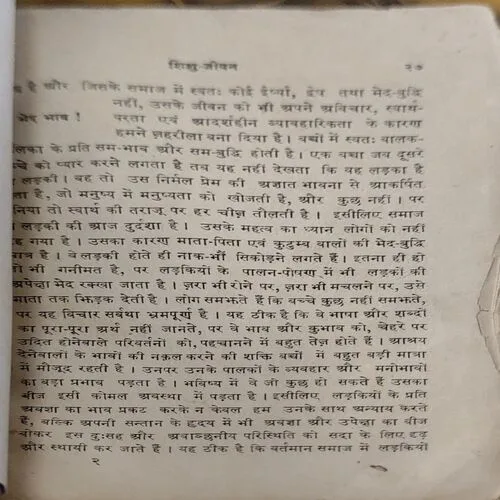 शिशु-जीवन २७
है और जिसके समाज में स्वतः कोई ईर्ष्या, द्वेष तथा भेद-बुद्धि
नहीं, उसके जीवन को भी अपने अविचार, स्वार्थ-
भेद भाव ! परता एवं आदर्शहीन व्यावहारिकता के कारण
हमने ज़हरीला बना दिया है। बच्चों में स्वतः बालक-
लिका के प्रति सम-भाव और सम-बुद्धि होती है। एक बच्चा जब दूसरे
च्चे को प्यार करने लगता है तब यह नहीं देखता कि यह लड़का है
लड़की। वह तो उस निर्मल प्रेम की अज्ञात भावना से आकर्षित
ता है, जो मनुष्य में मनुष्यता को खोजती है, और कुछ नहीं। पर
निया तो स्वार्थ की तराजू पर हर चीज़ तौलती है। इसीलिए समाज
लड़की की आज दुर्दशा है। उसके महत्व का ध्यान लोगों को नहीं
ह गया है। उसका कारण माता-पिता एवं कुटुम्ब वालों की भेद-बुद्धि
ात्र है। वे लड़की होते ही नाक-भौं सिकोड़ने लगते हैं। इतना ही हो
तो भी गनीमत है, पर लड़कियों के पालन-पोषण में भी लड़कों की
अपेक्षा भेद रक्खा जाता है। ज़रा भी रोने पर, ज़रा भी मचलने पर, उसे
माता तक झिड़क देती है। लोग समझते हैं कि बच्चे कुछ नहीं समझते,
पर यह विचार सर्वथा भ्रमपूर्ण है। यह ठीक है कि वे भाषा और शब्दों
का पूरा-पूरा अर्थ नहीं जानते, पर वे भाव और कुभाव को, चेहरे पर
उदित होनेवाले परिवर्तनों को, पहचानने में बहुत तेज़ होते हैं। आश्रय
देनेवालों के भावों की नक़ल करने की शक्ति बच्चों में बहुत बड़ी मात्रा
में मौजूद रहती है। उनपर उनके पालकों के व्यवहार और मनोभावों
का बड़ा प्रभाव पड़ता है। भविष्य में वे जो कुछ हो सकते हैं उसका
बीज इसी कोमल अवस्था में पड़ता है। इसीलिए लड़कियों के प्रति
अवज्ञा का भाव प्रकट करके न केवल हम उनके साथ अन्याय करते
हैं, बल्कि अपनी सन्तान के हृदय में भी अवज्ञा और उपेक्षा का बीज
बोकर इस दुःसह और अवाञ्छनीय परिस्थिति को सदा के लिए दृढ़
और स्थायी कर जाते हैं। यह ठीक है कि वर्तमान समाज में लड़कियों
२